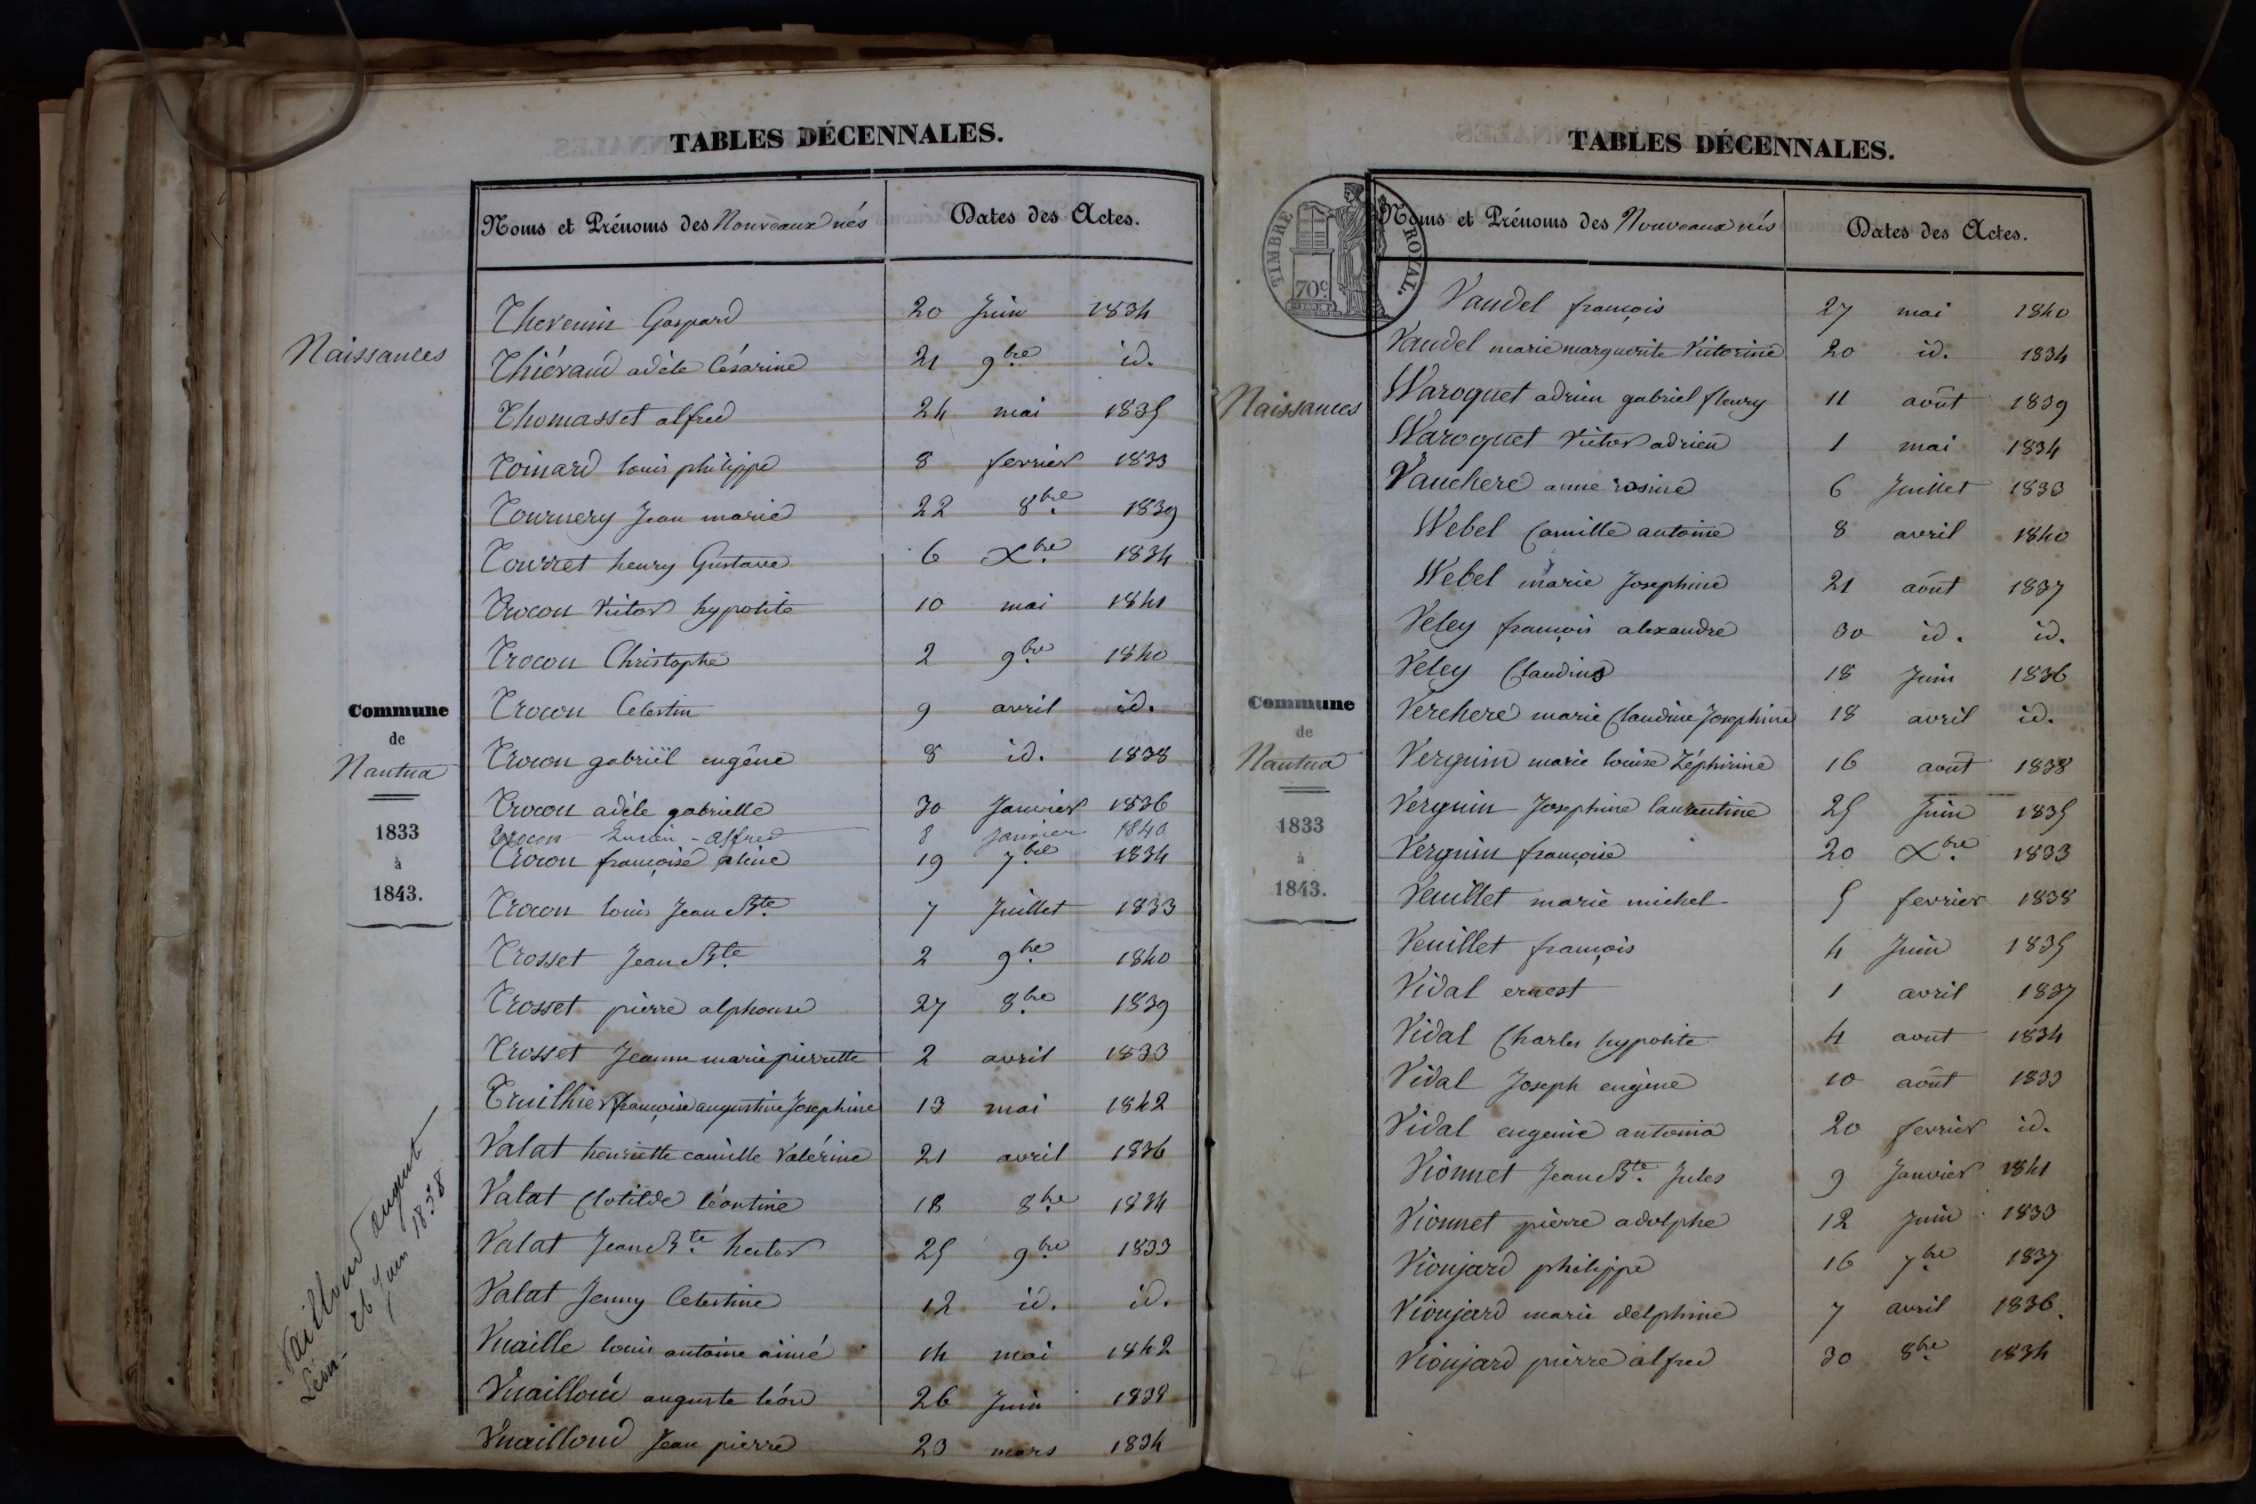 TABLES DÉCENNALES.
Noms et Prénoms des Nouveaux nés Dates des Actes.
Naissances
Commune
de
Nantua
1833
à
1843.
Thevenin Gaspard 20 Juin 1834
Thiévaud adèle Césarine 21 9bre id.
Thomasset alfred 24 mai 1835
Toinard louis philippe 8 fevrier 1833
Tournery Jean marie 22 8bre 1839
Tourret henry Gustave 6 Xbre 1834
Trocon Victor hypolite 10 mai 1841
Trocon Christophe 2 9bre 1840
Trocon Celestin 9 avril id.
Trocon gabriël eugêne 8 id. 1838
Trocon adèle gabrielle 30 Janvier 1836
Trocon Lucien-alfred 8 janvier 1840
Trocon françoise aline 19 7bre 1834
Trocon louis Jean Bte 7 Juillet 1833
Trosset Jean Bte 2 9bre 1840
Trosset pierre alphonse 27 8bre 1839
Trosset Jeanne marie pierrette 2 avril 1833
Truilhier françoise augustine Josephine 13 mai 1842
Valat henriette camille Valérine 21 avril 1836
Valat Clotilde léontine 18 8bre 1834
Valat Jean Bte hector 25 9bre 1833
Valat Jenny Celestine 12 id. id.
Vuaille louis antoine aimé 14 mai 1842
Vuailloud auguste léon 26 Juin 1838
Vuailloud Jean pierre 23 mars 1834
Vailloud august
Léon - 26 juin 1838
TABLES DÉCENNALES.
TIMBRE ROYAL.
70c
Noms et Prénoms des Nouveaux nés Dates des Actes.
Naissances
Commune
de
Nantua
1833
à
1843.
Vaudel françois 27 mai 1840
Vaudel marie marguerite Victorine 20 id. 1834
Waroquet adrien gabriel fleury 11 août 1839
Waroquet Victor adrien 1 mai 1834
Vauchere anne rosine 6 Juillet 1833
Webel Camille antoine 8 avril 1840
Webel marie Josephine 21 août 1837
Veley françois alexandre 30 id. id.
Veley Claudius 18 Juin 1836
Verchere marie Claudine Josephine 18 avril id.
Verguin marie louise Zéphirine 16 aout 1838
Verguin Josephine laurentine 25 Juin 1835
Verguin françoise 20 Xbre 1833
Veuillet marie michel 5 fevrier 1838
Veuillet françois 4 Juin 1835
Vidal ernest 1 avril 1837
Vidal Charles hypolite 4 aout 1834
Vidal Joseph eugène 10 août 1833
Vidal eugenie antonia 20 fevrier id.
Vionnet Jean Bte Jules 9 Janvier 1841
Vionnet pierre adolphe 12 Juin 1833
Vioujard philippe 16 7bre 1837
Vioujard marie delphine 7 avril 1836.
Vioujard pierre alfred 30 8bre 1834